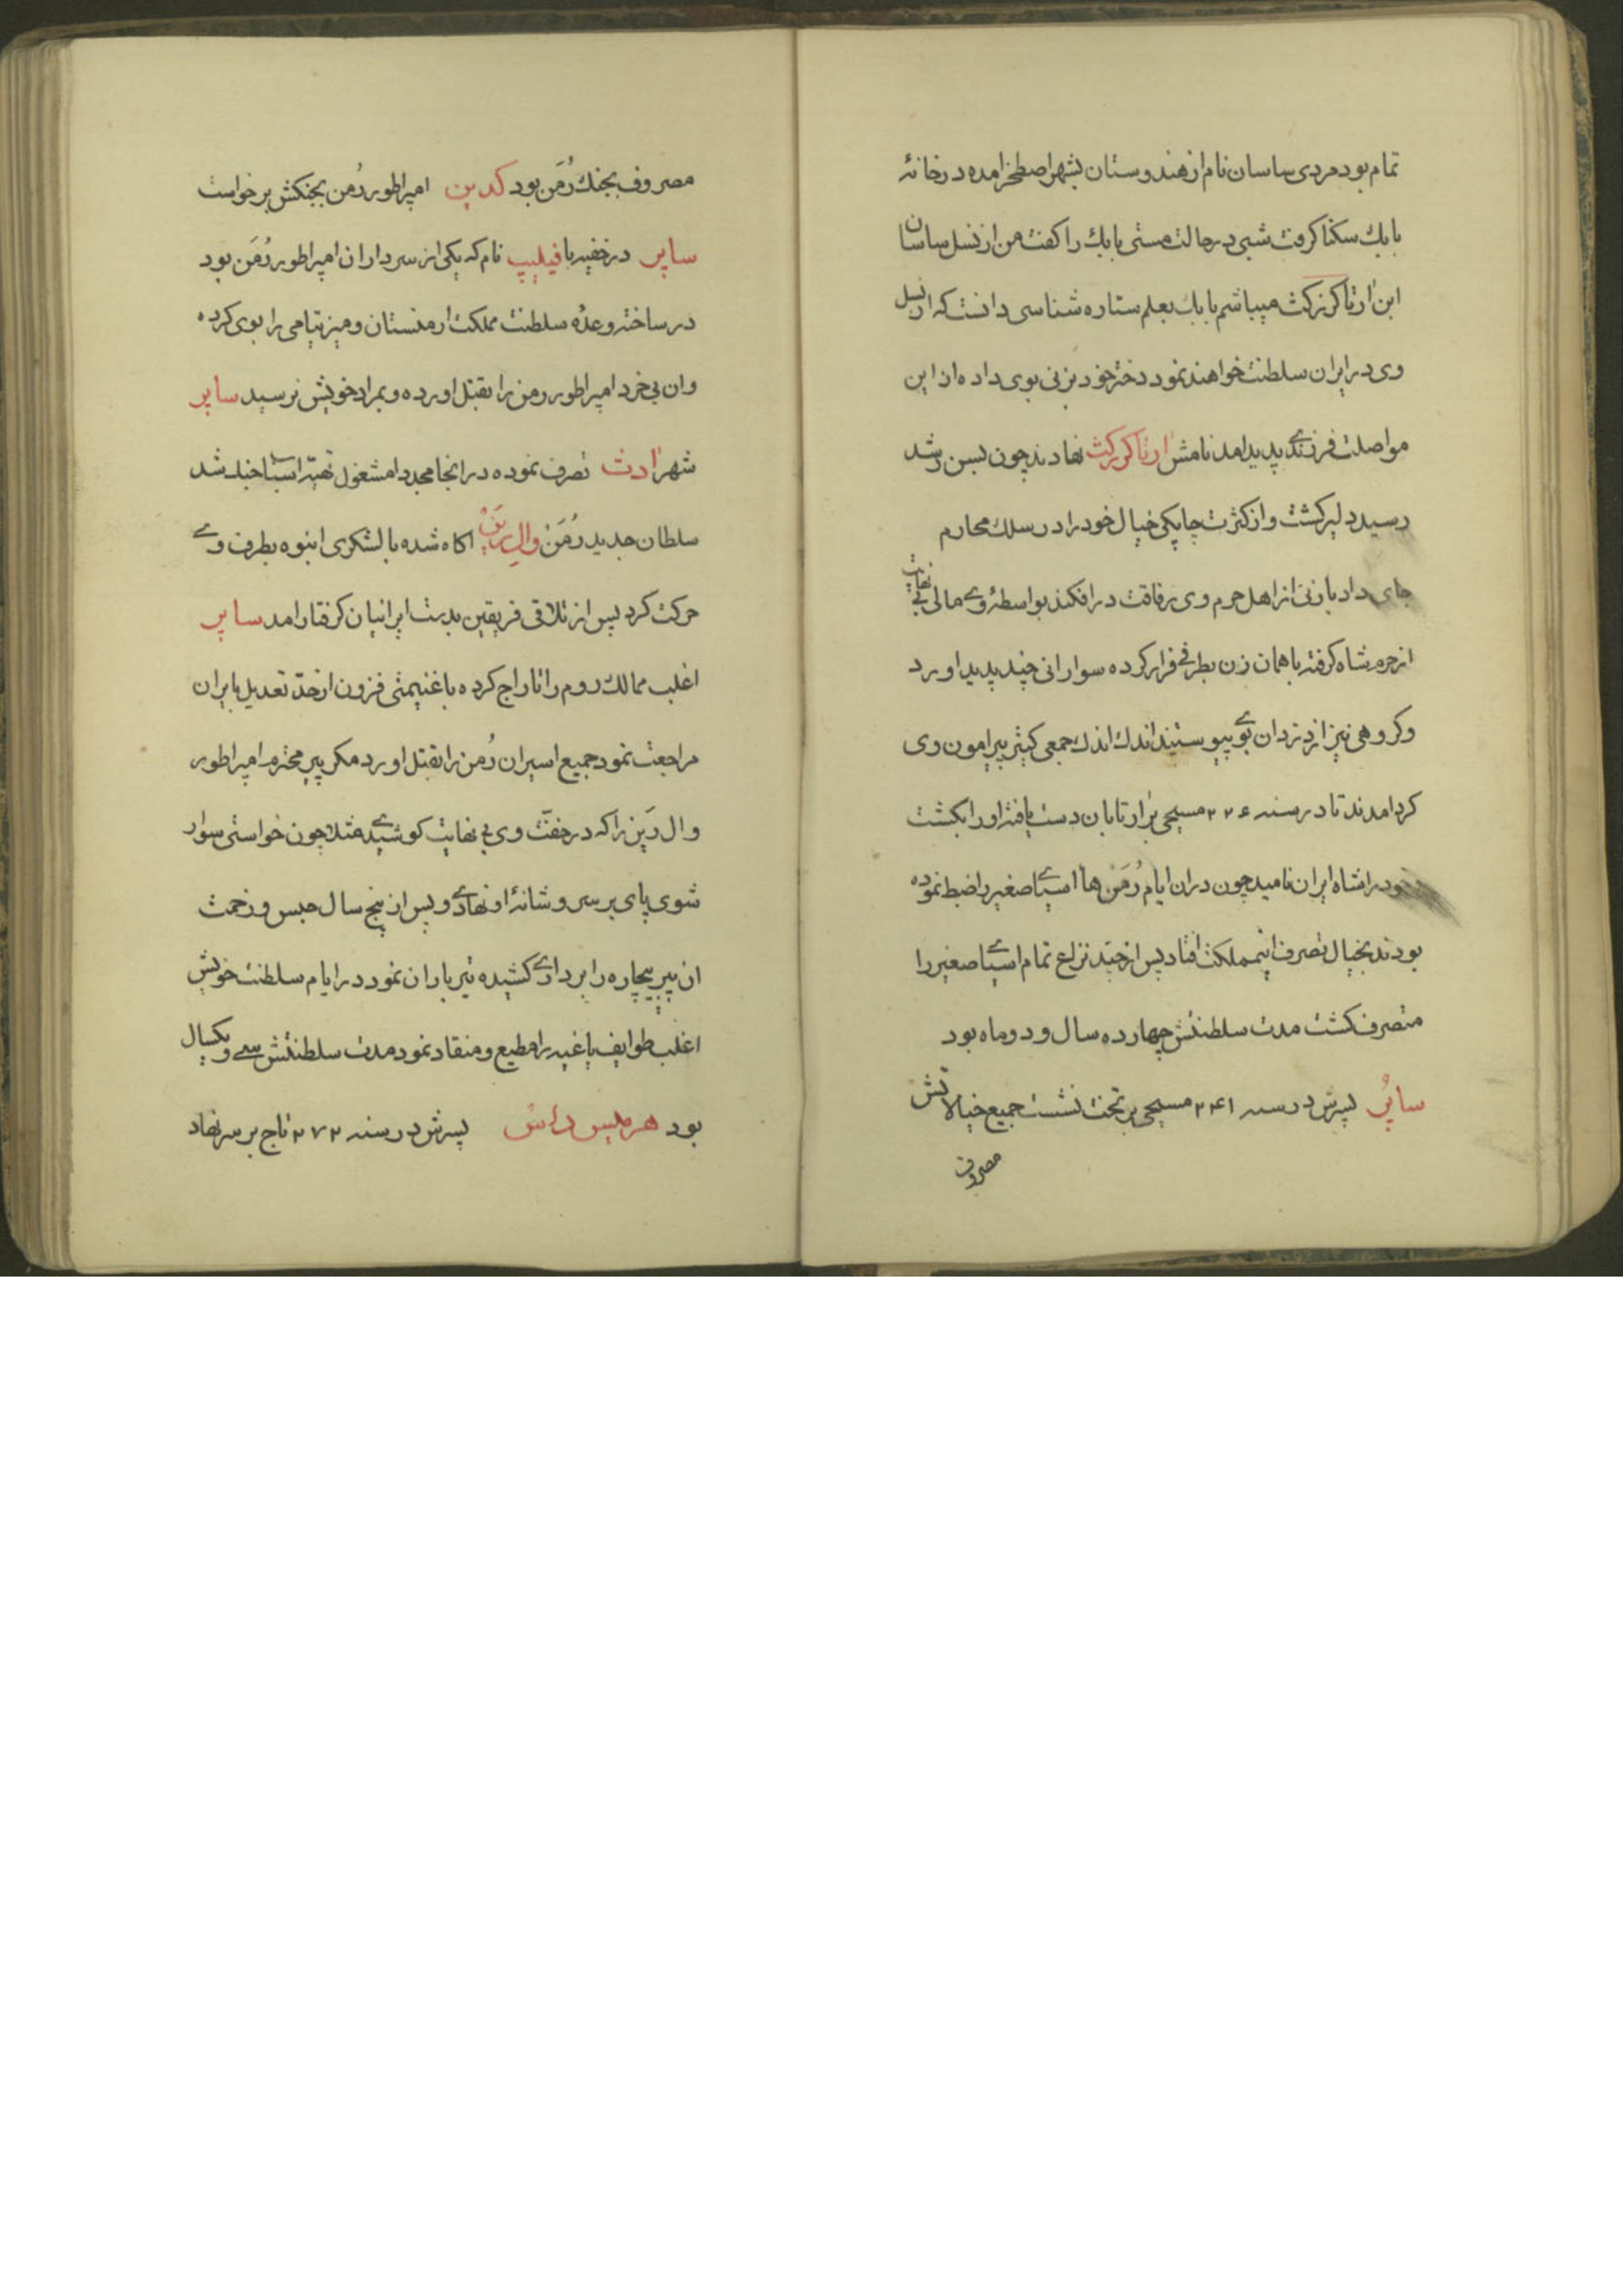 تمام بود مردی ساسان نام از هندوستان بشهر اصطخر امده در خانهٔ
بابك سکنا کرفت شبی در حالت مستی بابك را کفت من از نسل ساسان
ابن ارتاکزرکث میباشم بابك بعلم ستاره شناسی دانست که از نسل
وی در ایران سلطنت خواهند نمود دختر خود بزنی بوی داده از این
مواصلت فرزندی پدید امد نامش ارتاکزرکث نهادند چون بسن رشد
رسید دلیر کشت و از کثرت چاپکی خیال خود را در سلك محارم
جای داد با زنی از اهل حرم وی رفاقت در افکند بواسطهٔ وی مالی بی نهایت
از حرم شاه کرفته با همان زن بطرفی فرار کرده سوارانی چند پدید اورد
وکروهی نیز از دزدان بوی پیوستند اندك اندك جمعی کثیر پیرامون وی
کرد امدند تا در سنه ۲۲۶ مسیحی بر ارتابان دست یافته او را بکشت
خود را شاه ایران نامید چون در ان ایام رُمَن ها اسیای صغیر را ضبط نموده
بودند بخیال تصرف انمملکت افتاد پس از چند نزاع تمام اسیای صغیر را
متصرف کشت مدت سلطنتش چهارده سال و دو ماه بود
ساپُر پسرش در سنه ۲۴۱ مسیحی بر تخت نشست جمیع خیالاتش
مصروف
مصروف بجنك رُمَن بود کدین امپراطور رُمن بجنکش برخواست
ساپر در خفیه با فیلیپ نام که یکی از سرداران امپراطور رُمَن بود
در ساخته وعدهٔ سلطنت مملکت ارمنستان و میزپتامی را بوی کرده
وان بی خرد امپراطور رمن را بقتل اورده و بمراد خویش نرسید ساپر
شهر ادث تصرف نموده در انجا مجددا مشغول تهیهٔ اسباب جنك شد
سلطان جدید رُمَن والِ رین اکاه شده با لشکری انبوه بطرف وی
حرکت کرد پس از تلاقی فریقین بدست ایرانیان کرفتار امد ساپر
اغلب ممالك روم را تاراج کرده با غنیمتی فزون از حدّ تعدیل بایران
مراجعت نمود جمیع اسیران رُمن را بقتل اورد مکر پیر محترم امپراطور
وال رَین را که در خفّت وی بی نهایت کوشیدی مثلا چون خواستی سوار
شوی پای بر سر و شانهٔ او نهادی و پس از پنج سال حبس و زحمت
ان پیر بیچاره را بر داری کشیده تیر باران نمود در ایام سلطنت خویش
اغلب طوایف یاغیه را مطیع و منقاد نمود مدت سلطنتش سی و یکسال
بود هرمیس داس پسرش در سنه ۲۷۲ تاج بر سر نهاد